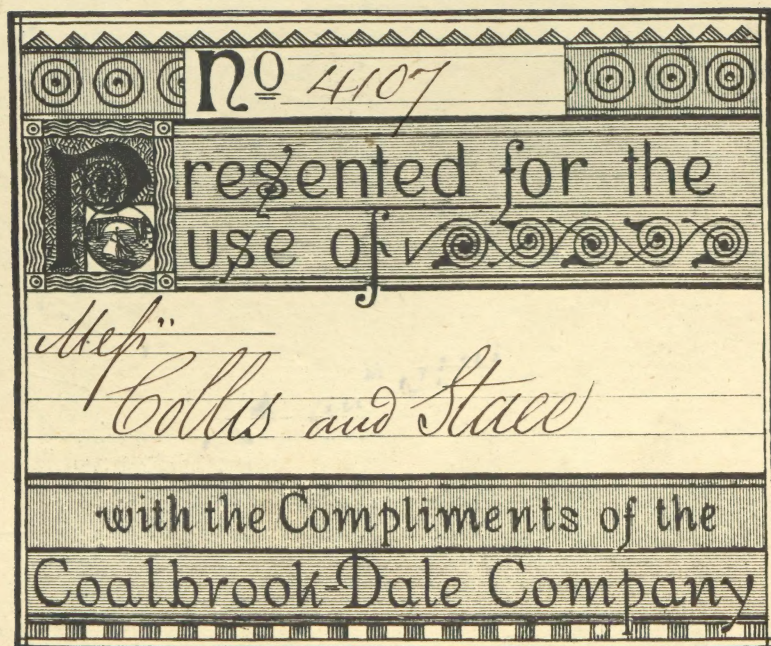 No 4107
Presented for the
use of
Messrs
Collis and Stace
with the Compliments of the
Coalbrook-Dale Company